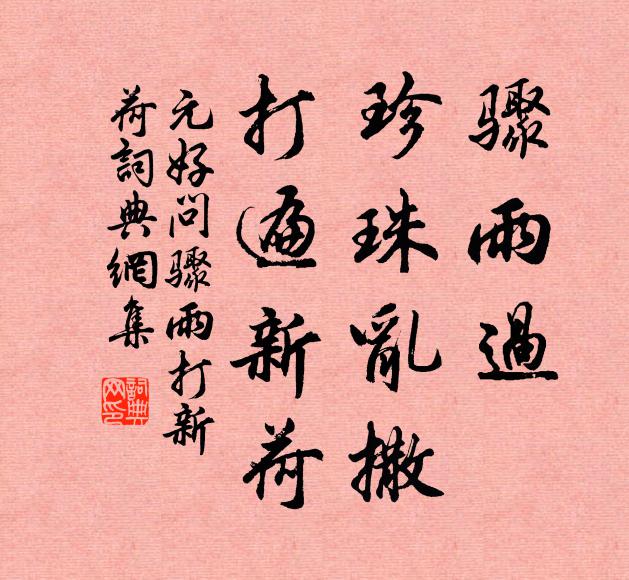 骤雨過
珍珠亂撒
打遍新荷
元好问骤雨打新
荷詞典網集
詞典网印